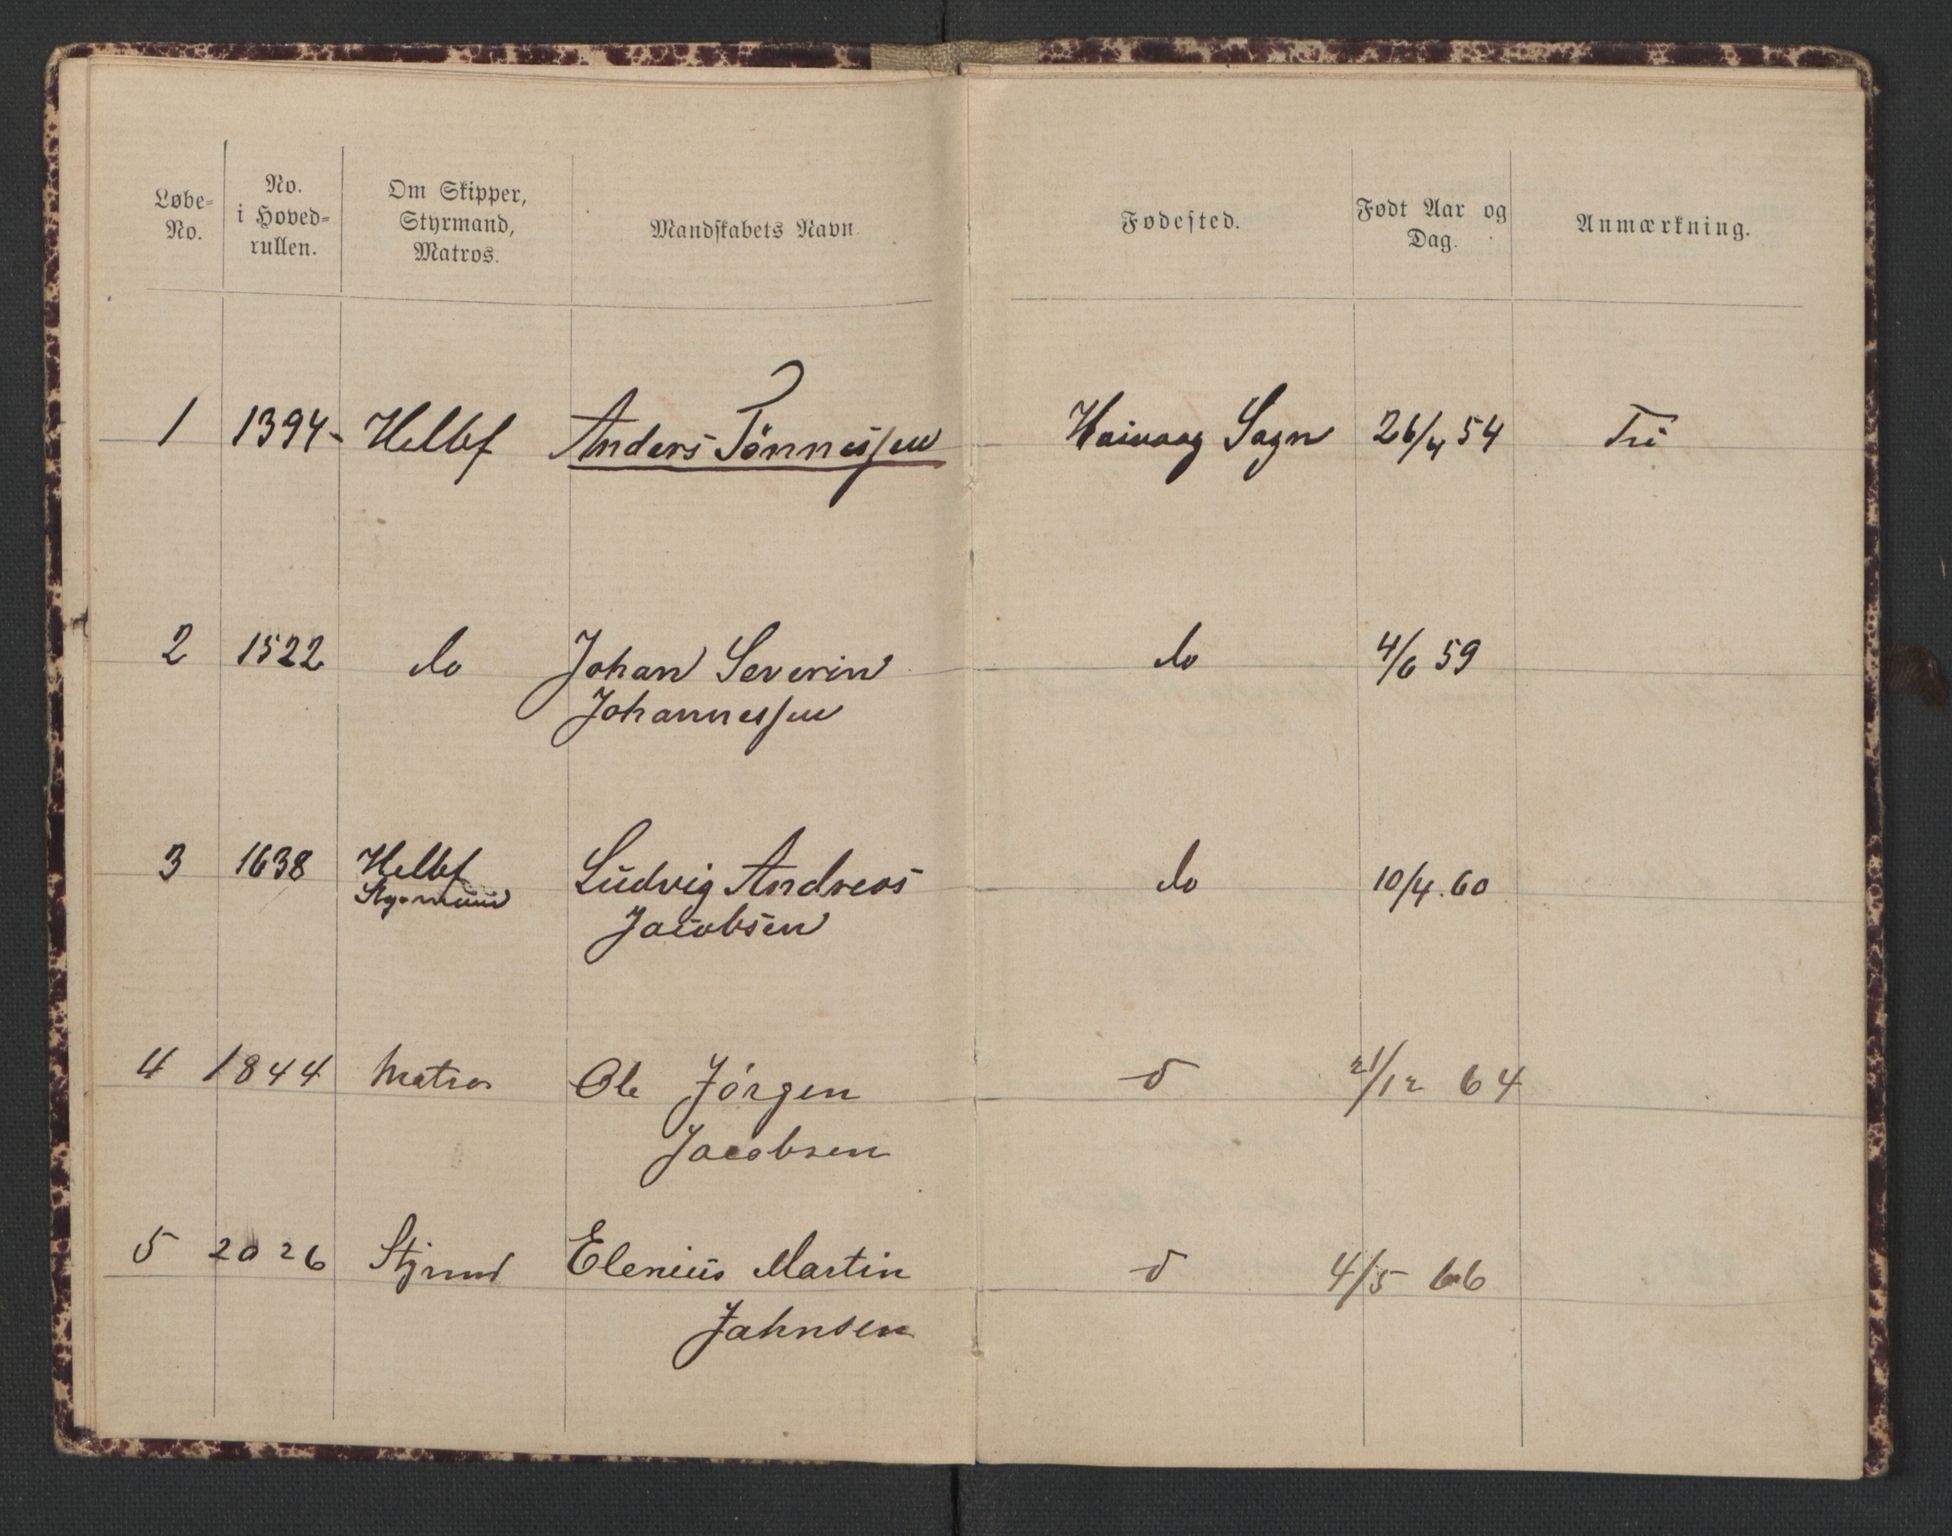 Løbe-No.	No. i Hoved-rullen.	Om Skipper, Styrmand, Matros.	Mandskabets Navn.	Fødested.	Født Aar og Dag.	Anmærkning.
1	1394	Helbef	Anders Tønnessen	Høivaag Sogn	26/4 54	Fri
2	1522	do	Johan Severin	do	4/6 59
Johannessen
3	1638	Helbef	Ludvig Andreas	do	10/4. 60
Styrmand	Jacobsen
4	1844	Matros	Ole Jörgen	d	21/12 64
Jacobsen
5	2026	Styrmd	Elenius Martin	d	4/5 66
Jahnsen